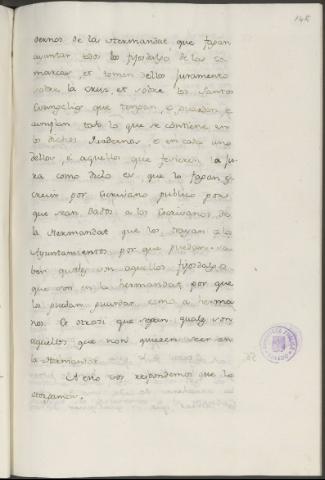 148
dernos de la Hermandat, que fagan
ayuntar todos los fijosdalgo de las co
marcas, et tomen dellos juramento
sobre la crus, et sobre los Santos
Evangelios que tengan, e guarden e
cumplan todo lo que se contiene en
los dichos quadernos, e en cada uno
dellos, e aquellos que fesieren la ju
ra como dicho es que la fagan es
crevir por Escrivano publico por
que sean dados a los Escrivanos de
la Hermandat que los trayan a los
Ayuntamientos por que puedan sa
ber quales son aquellos fijosdalgo
que son en la hermandat, por que
los puedan guardar como a herma
nos. Et otrosi que sepan quales son
aquellos que non quieren seer en
la Hermandat.
A esto vos respondemos que lo
otorgamos.